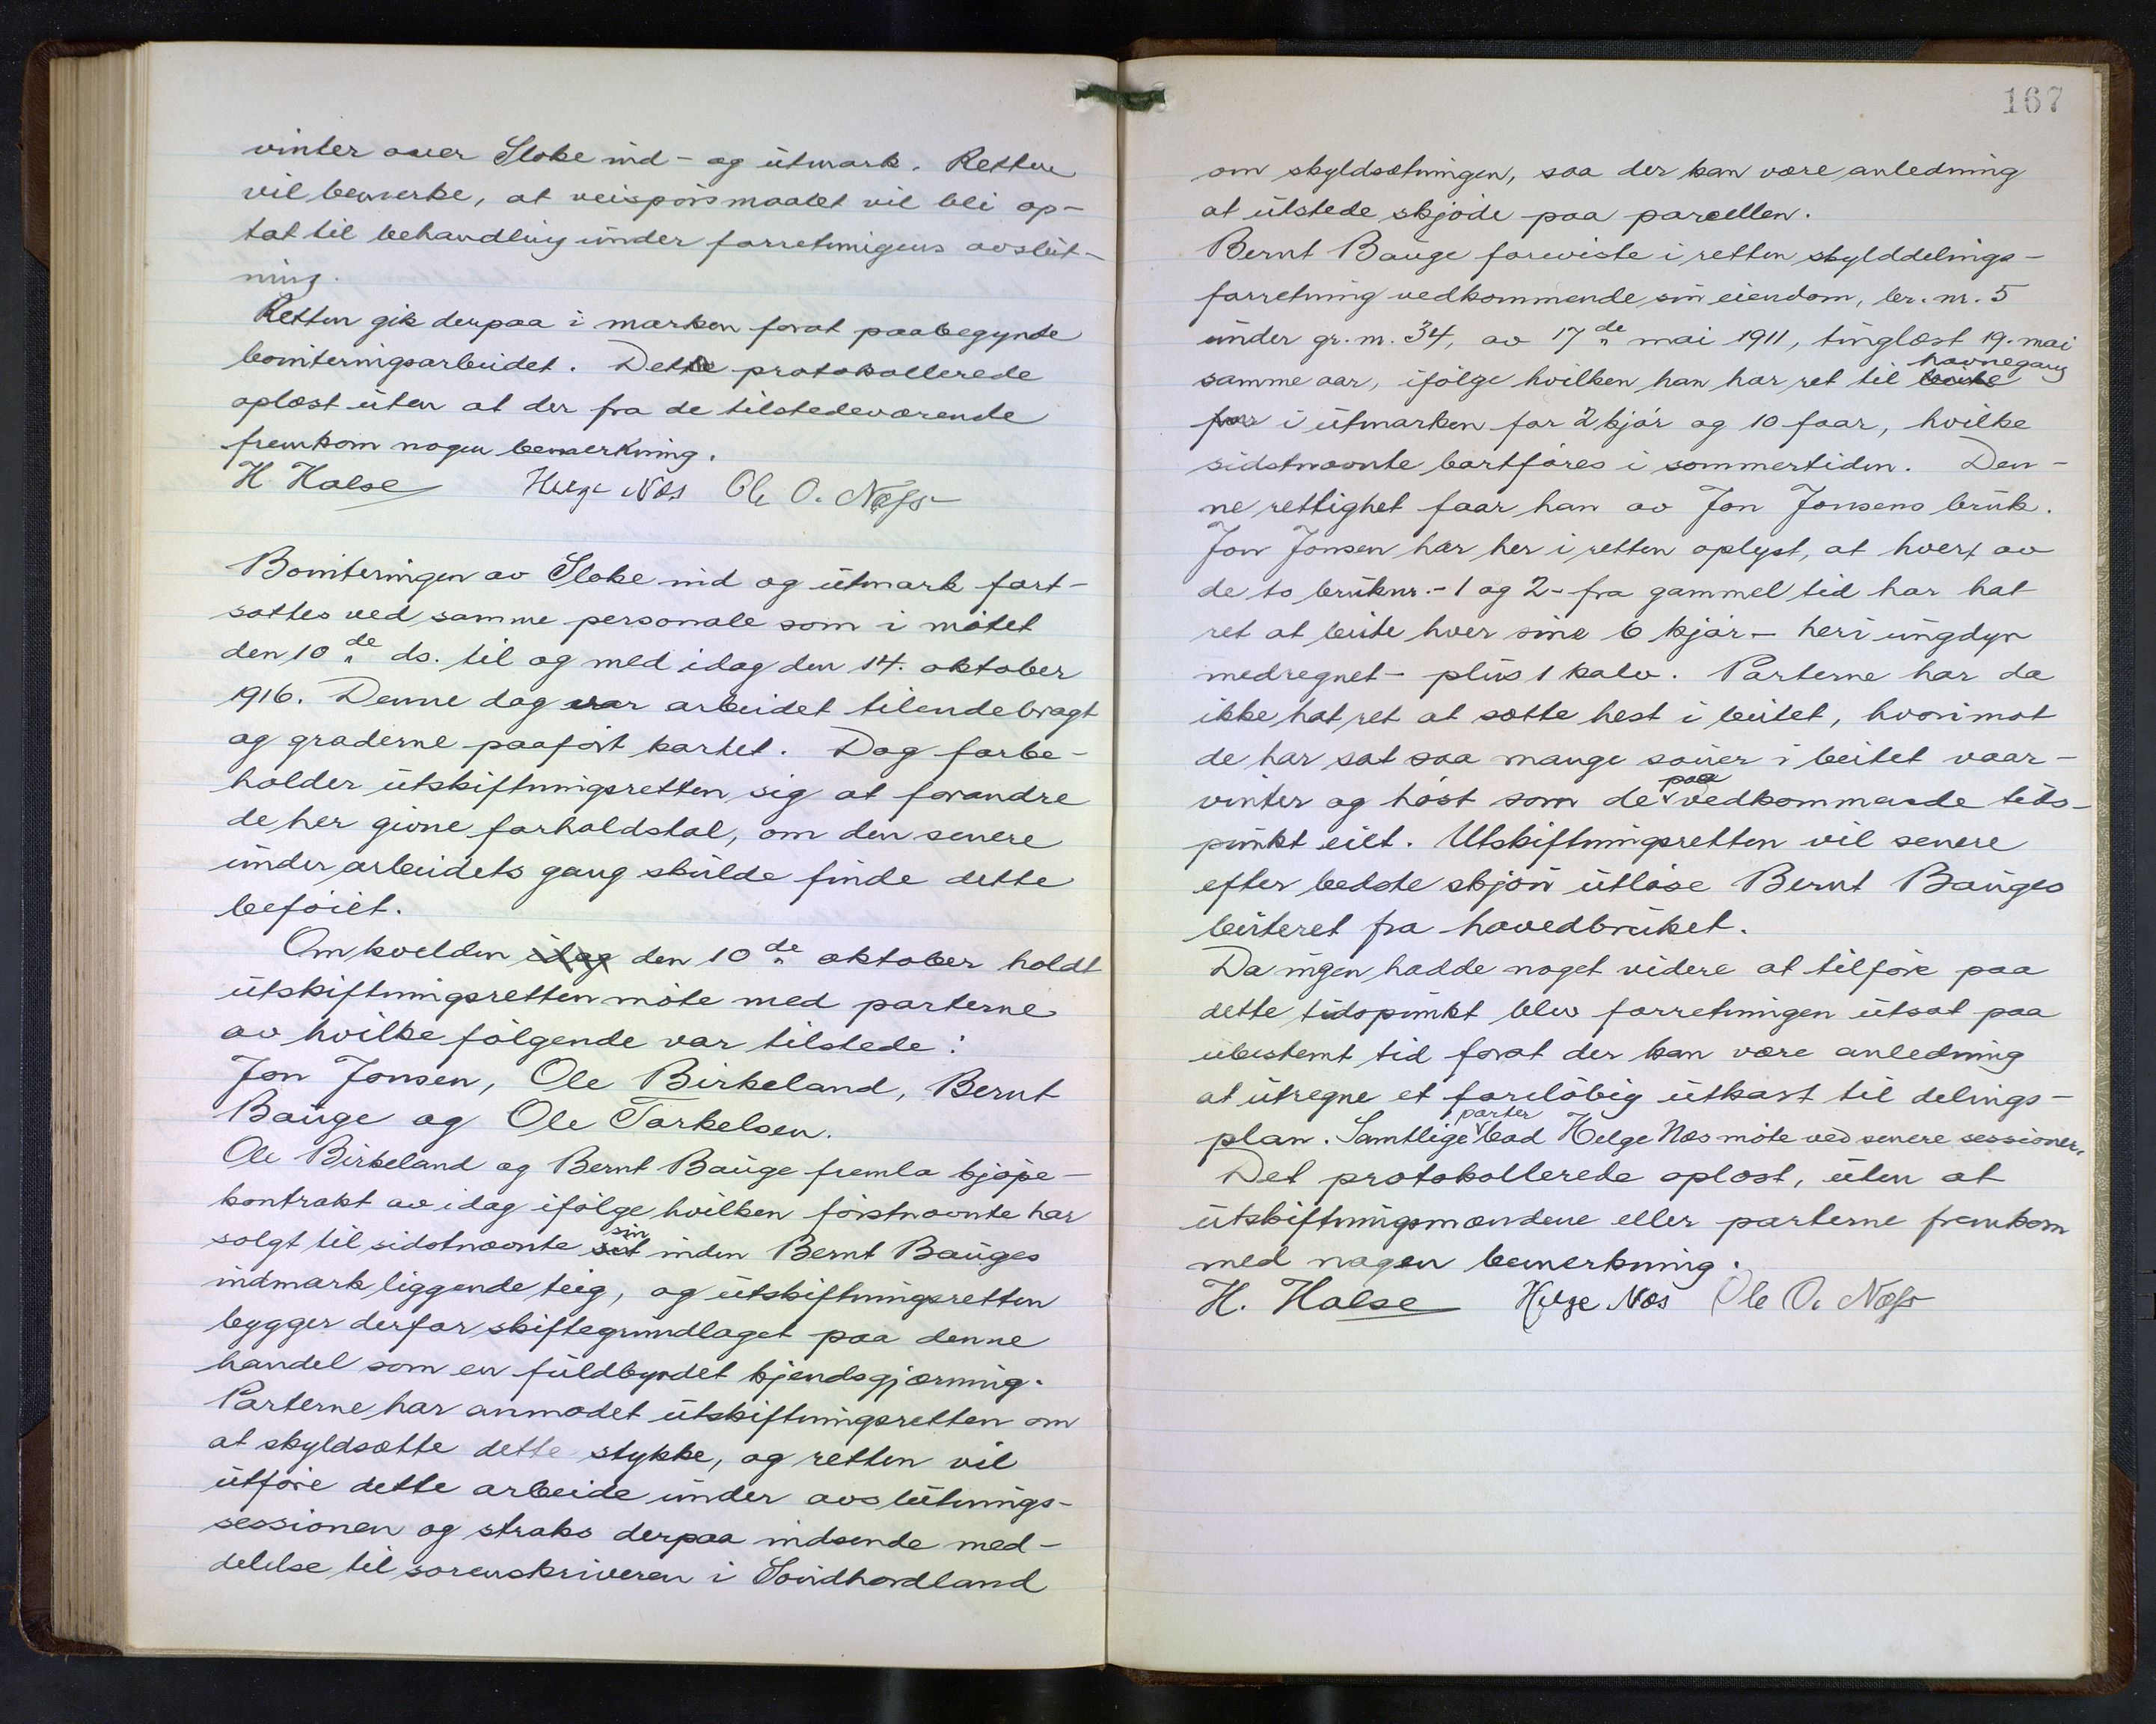 vinter over Sloke ind- og utmark. Retten
vil bemerke, at veispørsmaalet vil bli op-
tat til behandling under forretningens avslut-
ning.
Retten gik derpaa i marken forat paabegynde
boniteringsarbeidet. Dette protokollerede
oplæst uten at der fra de tilstedeværende
fremkom nogen bemerkning.
H. Halse Helge Næs Ole O. Næss
Boniteringen av Sloke ind og utmark fort-
sattes ved samme personale som i møtet
den 10de ds. til og med idag den 14. oktober
1916. Denne dag var arbeidet tilendebragt
og graderne paaført kartet. Dog forbe-
holder utskiftningsretten sig at forandre
de her givne forholdstal, om den senere
under arbeidets gang skulde finde dette
beføiet.
Om kvelden idag den 10de oktober holdt
utskiftningsretten møte med parterne
av hvilke følgende var tilstede:
Jon Jonsen, Ole Birkeland, Bernt
Bauge og Ole Torkelsen.
Ole Birkeland og Bernt Bauge fremla kjøpe-
kontrakt av idag ifølge hvilken førstnævnte har
solgt til sidstnævnte sit sin inden Bernt Bauges
indmark liggende teig, og utskiftningsretten
bygger derfor skiftegrundlaget paa denne
handel som en fuldbyrdet kjendsgjærning.
Parterne har anmodet utskiftningsretten om
at skyldsætte dette stykke, og retten vil
utføre dette arbeide under avslutnings-
sessionen og straks derpaa indsende med-
delelse til sorenskriveren i Søndhordland
167
om skyldsætningen, saa der kan være anledning
at utstede skjøde paa parcellen.
Bernt Bauge foreviste i retten skylddelings-
forretning vedkommende sin eiendom, br. nr. 5
under gr. nr. 34, av 17de mai 1911, tinglæst 19. mai
samme aar, ifølge hvilken han har ret til beite havnegang
for i utmarken for 2 kjør og 10 faar, hvilke
sidstnævnte bortføres i sommertiden. Den-
ne rettighet faar han av Jon Jonsens bruk.
Jon Jonsen har her i retten oplyst, at hvert av
de to bruknr. - 1 og 2 - fra gammel tid har hat
ret at beite hver sine 6 kjør - heri ungdyr
medregnet - plus 1 kalv. Parterne har da
ikke hat ret at sætte hest i beitet, hvorimot
de har sat saa mange sauer i beitet vaar-
vinter og høst som de paa vedkommende tids-
punkt eiet. Utskiftningsretten vil senere
efter bedste skjøn utløse Bernt Bauges
beiteret fra hovedbruket.
Da ingen hadde noget videre at tilføie paa
dette tidspunkt blev forretningen utsat paa
ubestemt tid forat der kan være anledning
at utregne et foreløbig utkast til delings-
plan. Samtlige parter bad Helge Næs møte ved senere sessioner.
Det protokollerede oplæst, uten at
utskiftningsmændene eller parterne fremkom
med nogen bemerkning.
H. Halse Helge Næs Ole O. Næss